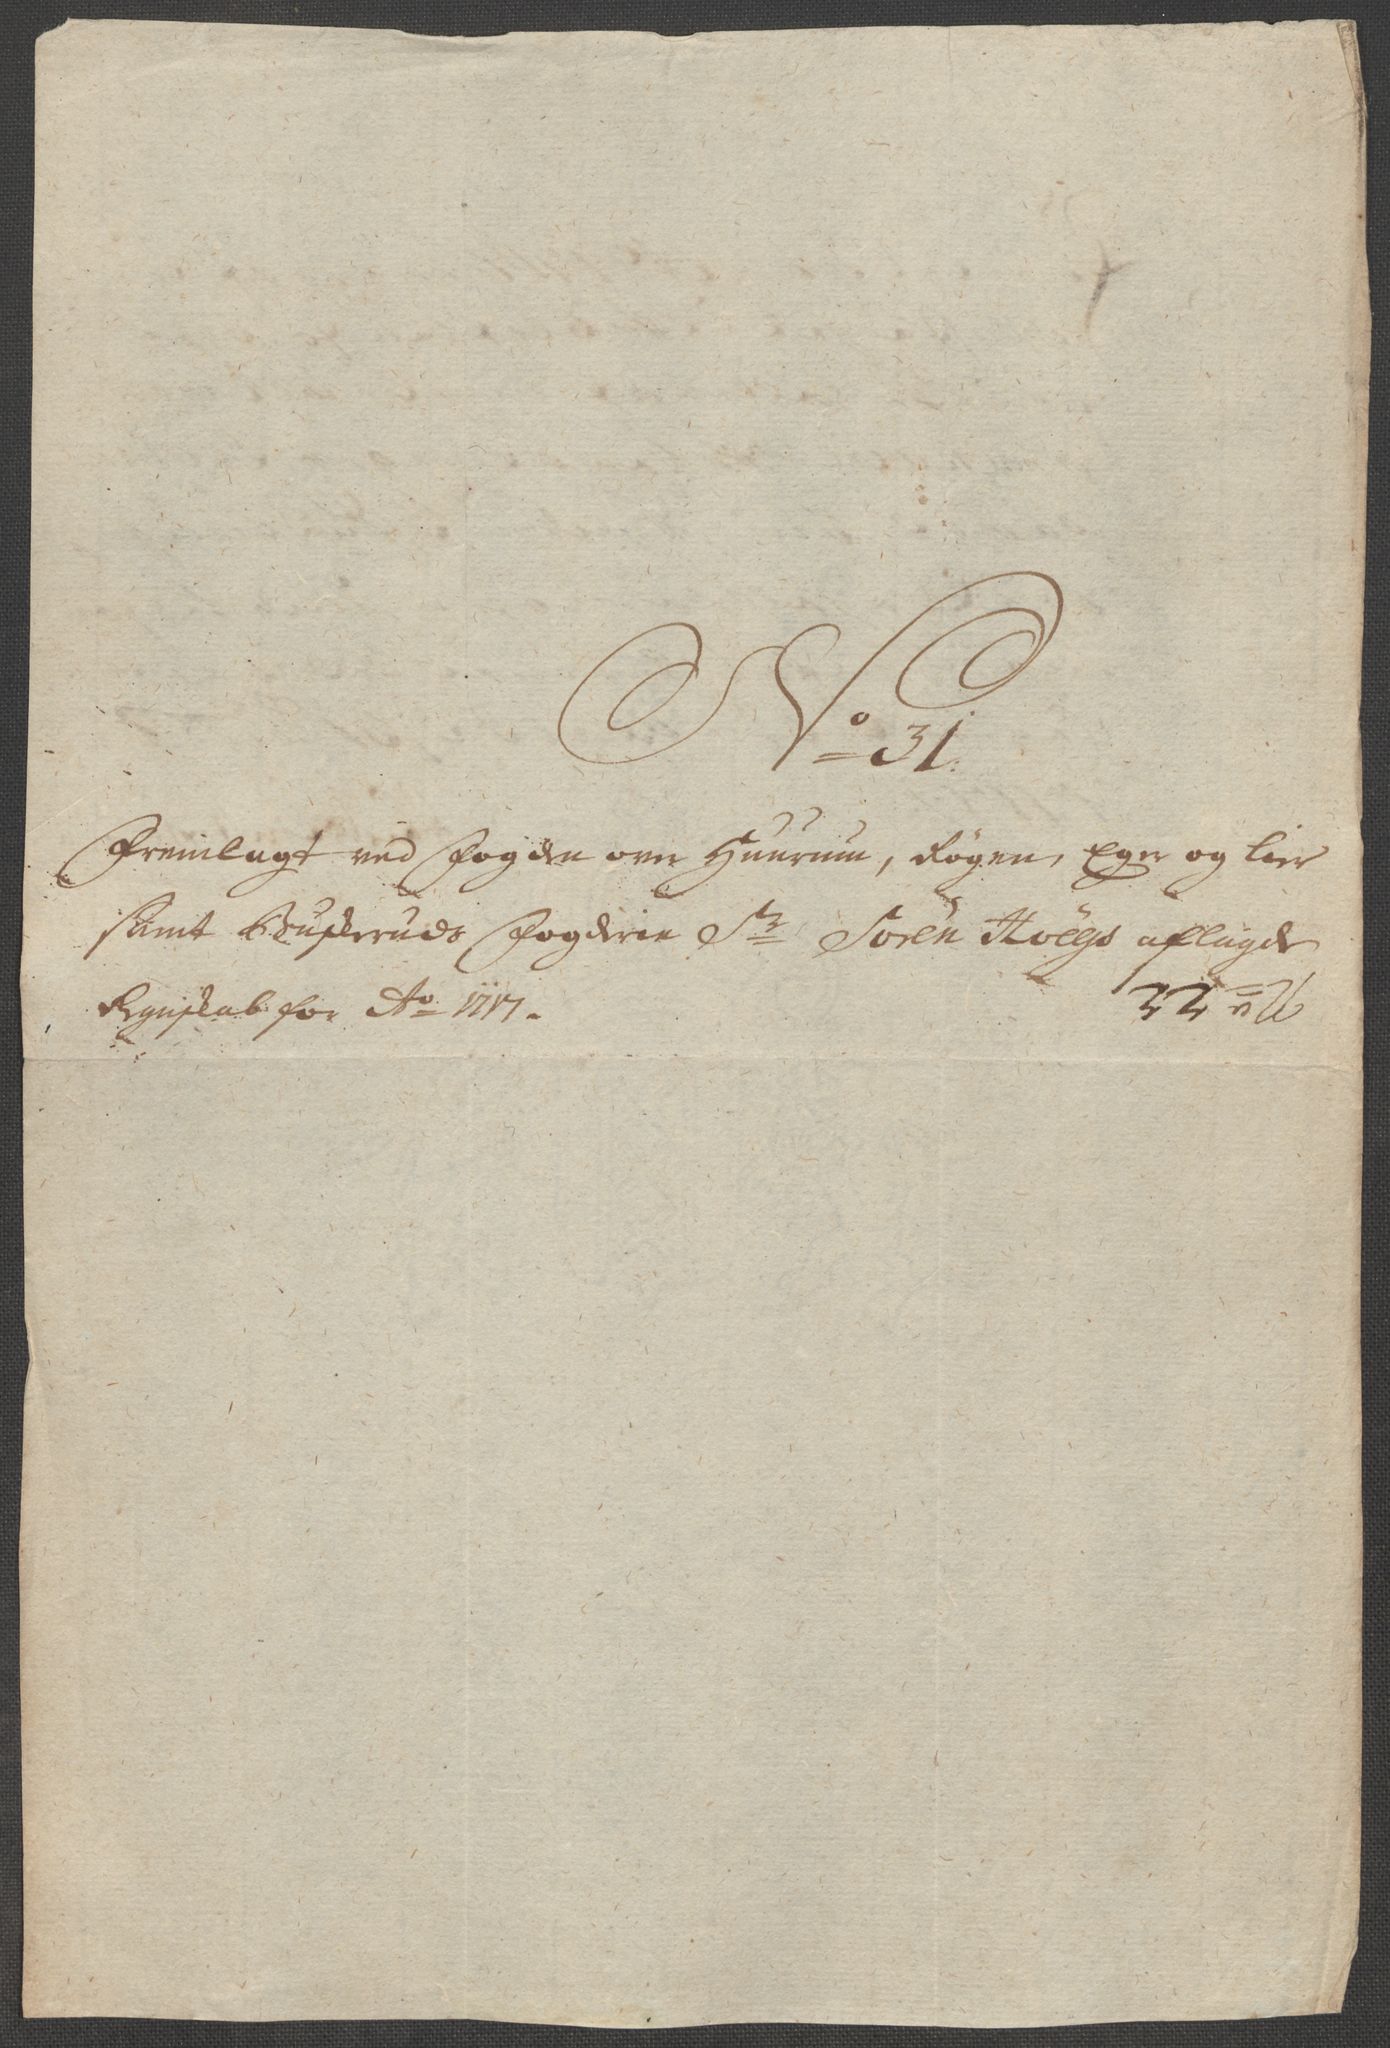 No 31.
Fremlagt ved Fogden over Huurum, Røgen, Eger og Lier
samt Buskeruds Fogderie Sr Sören Höegs aflagde
Regnskab for Ao 1717.